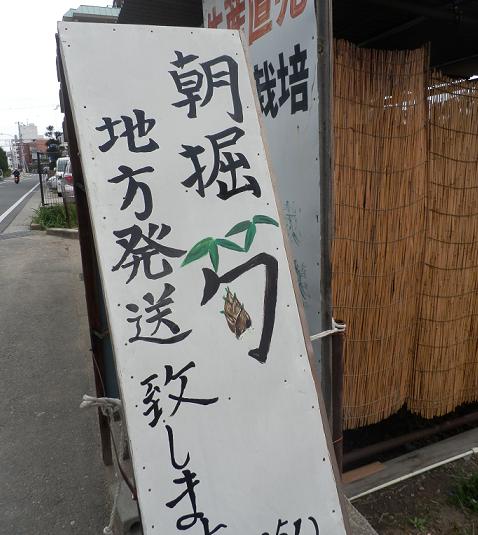 朝掘筍
地方発送致しま
生産直売
栽培